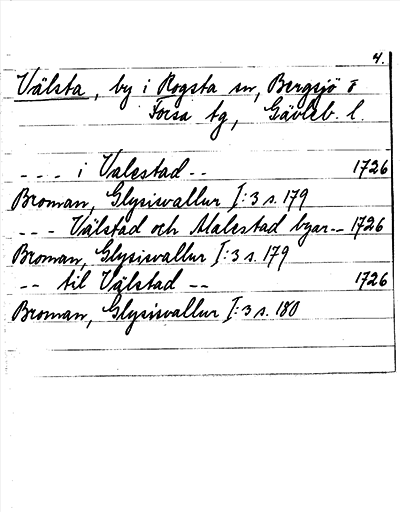 4.
Välsta, by i Rogsta sn, Bergsjö o
Forsa tg, Gävleb. l.
- - - i Valestad - - 1726
Broman, Glysisvallur I:3 s. 179
- - - Välstad och Malestad byar -- 1726
Broman, Glysisvallur I:3 s. 179
-- til Välstad -- 1726
Broman, Glysisvallur I:3 s. 180